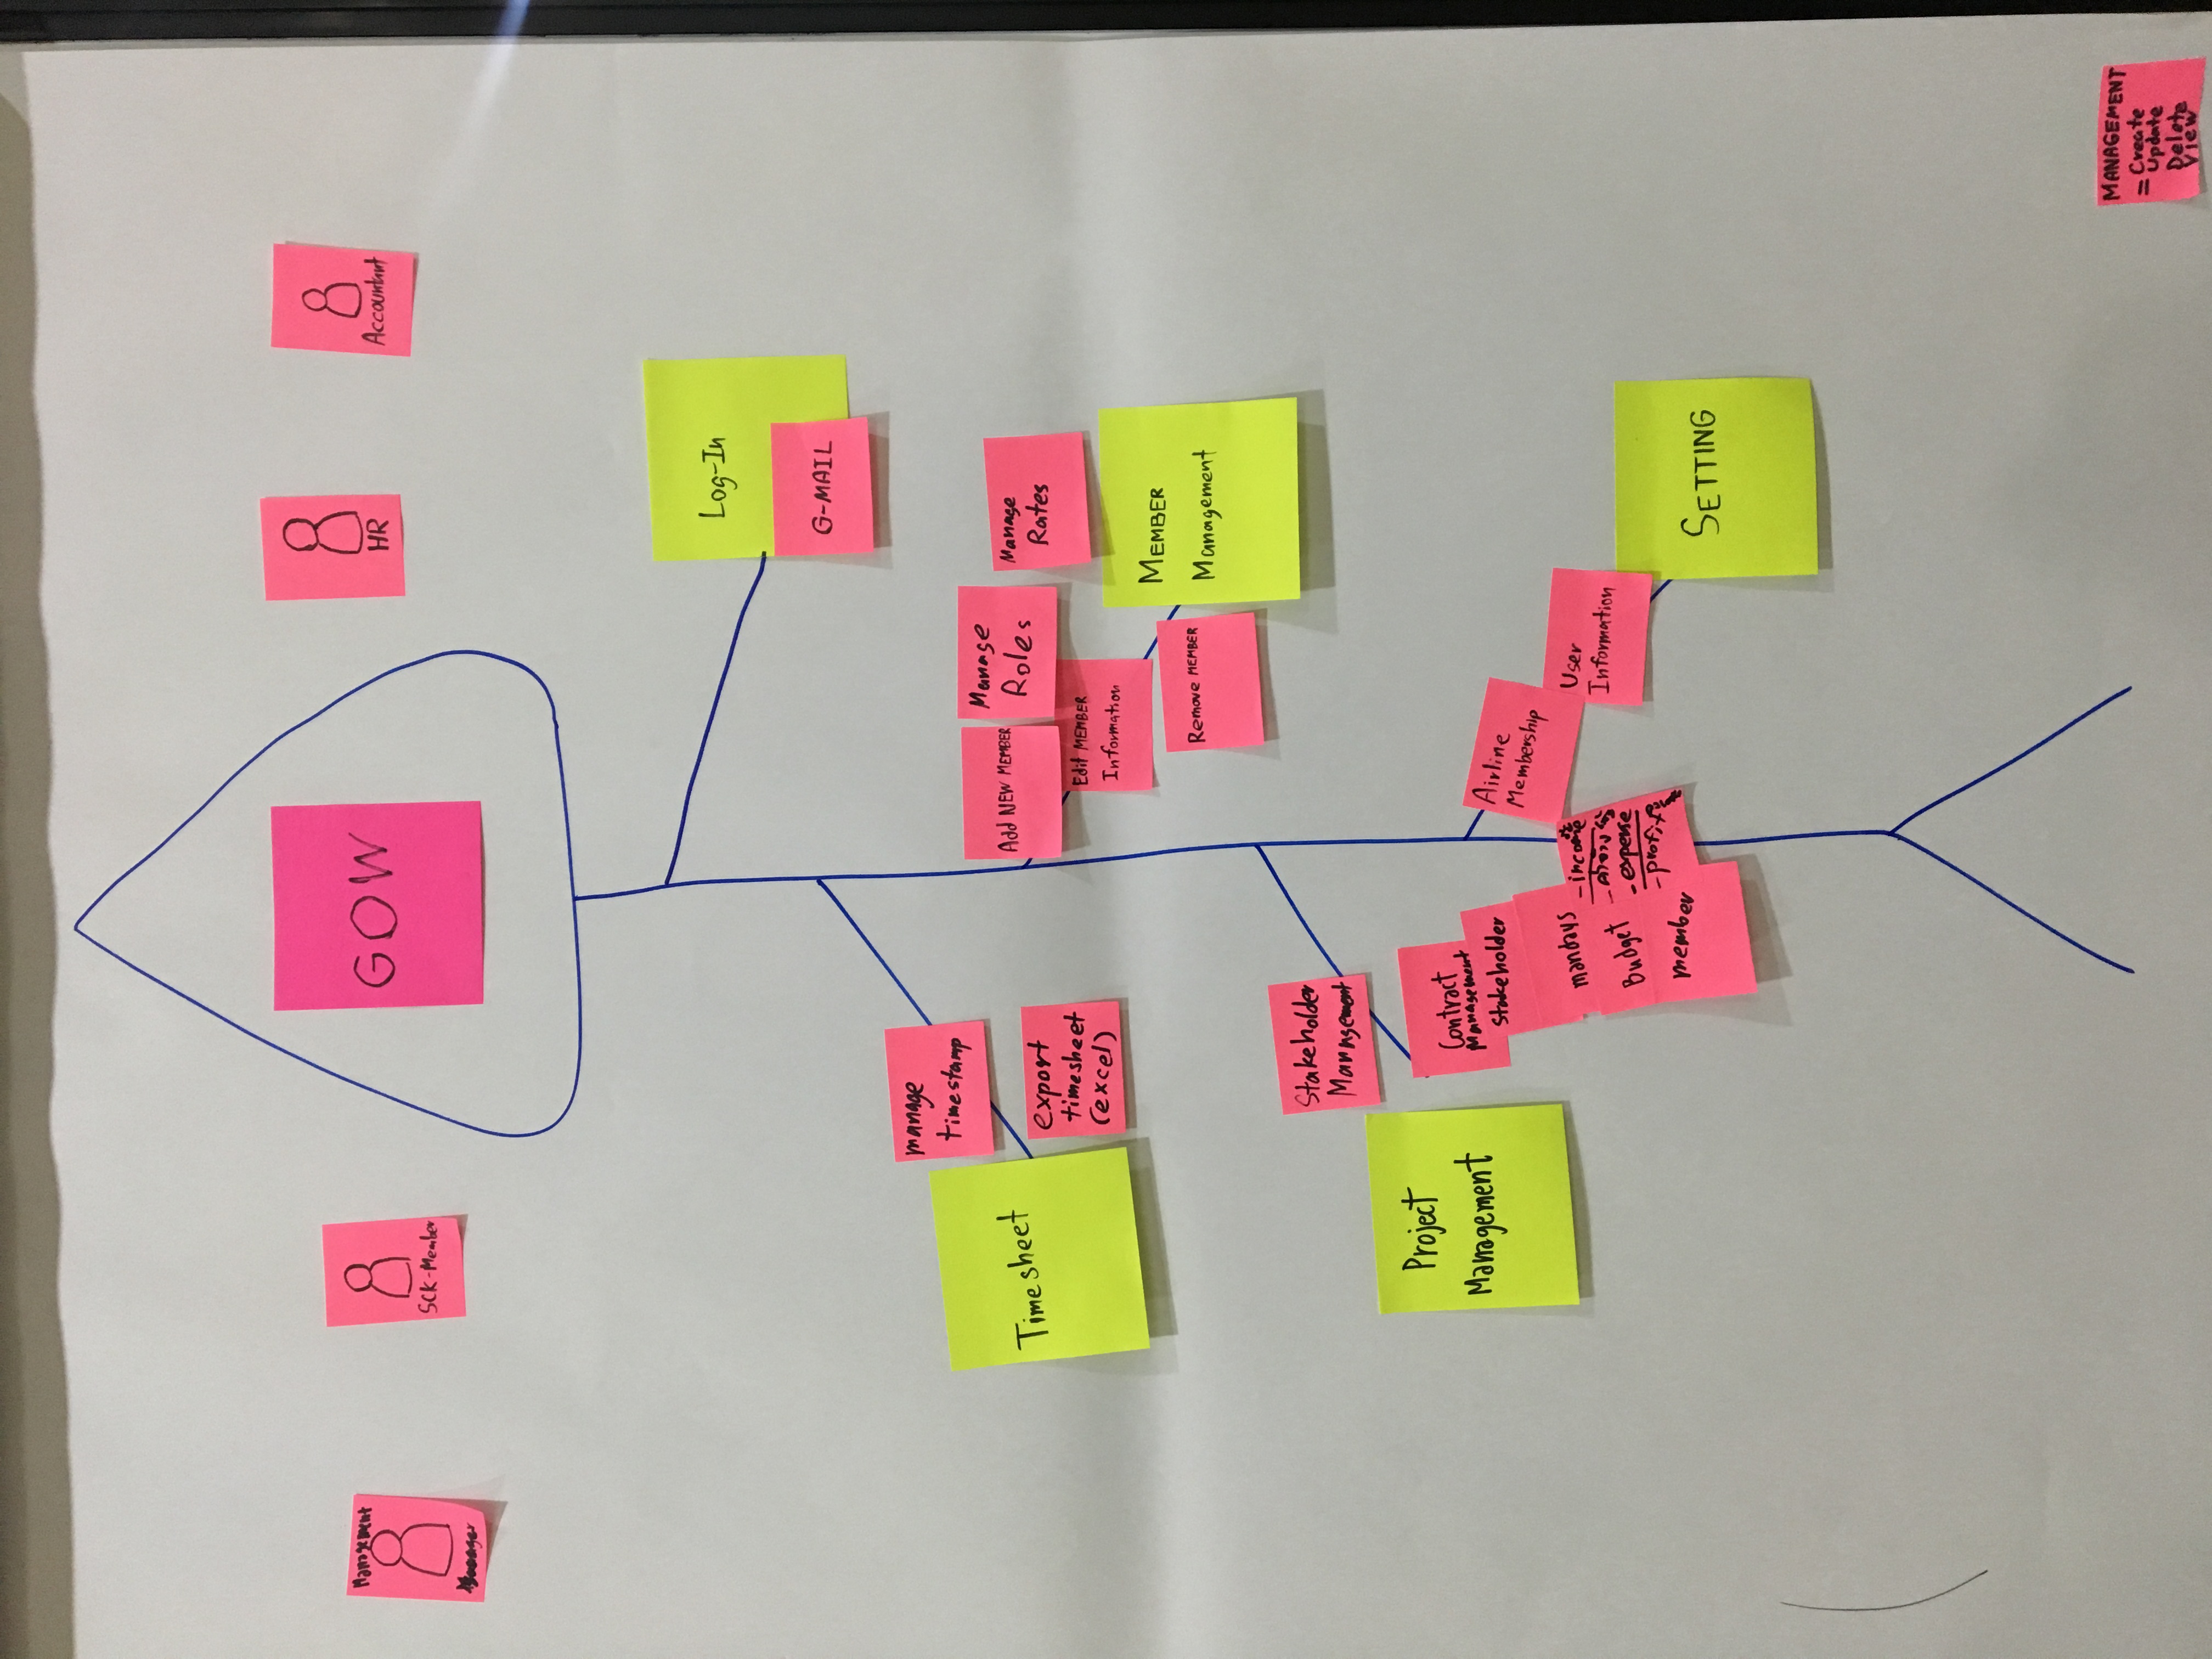 GOW
Management
SCK-Member
HR
Accountant
Log-In
G-MAIL
manage
timestamp
Timesheet
export
timesheet
(excel)
Add NEW MEMBER
Manage
Roles
Manage
Rates
Edit MEMBER
Information
MEMBER
Management
Remove MEMBER
Stakeholder
Management
Project
Management
Contract
Management
Stakeholder
mandays
Budget
member
-income
-expense
-profit
Airline
Membership
User
Information
SETTING
MANAGEMENT
= Create
Update
Delete
View